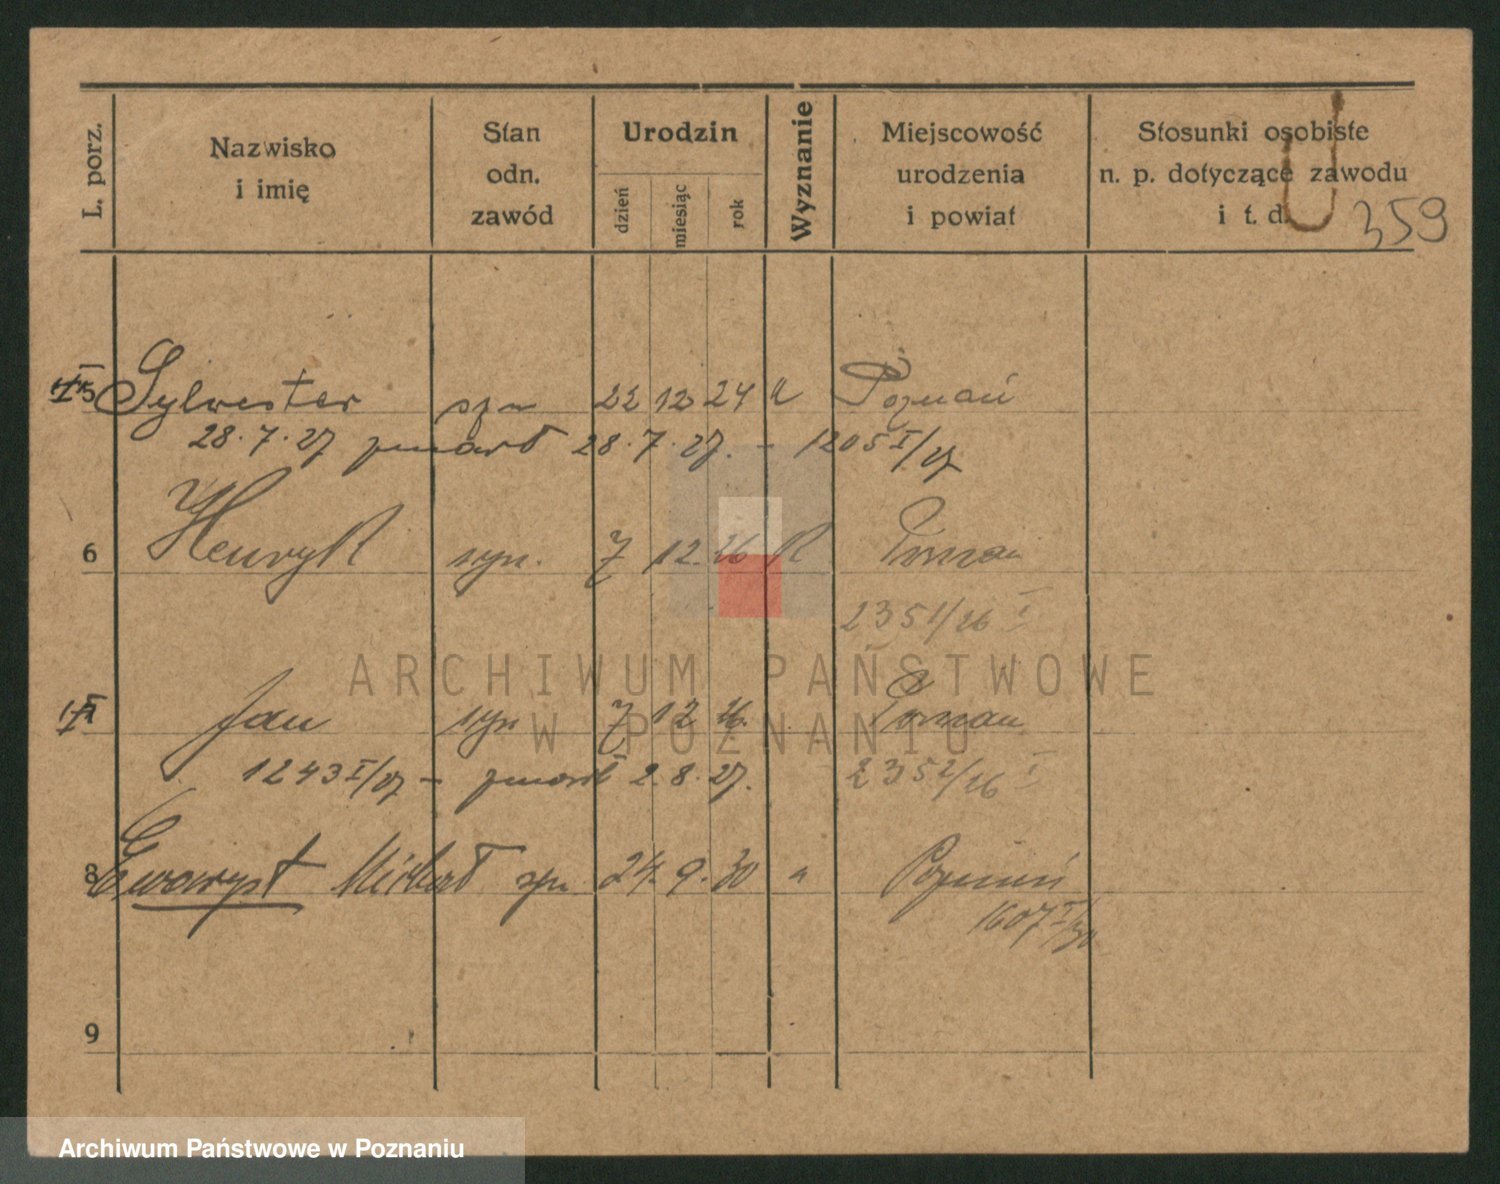 L. porz.
Nazwisko
i imię
Stan
odn.
zawód
Urodzin
dzień
miesiąc
rok
Wyznanie
Miejscowość
urodzenia
i powiat
Stosunki osobiste
n. p. dotyczące zawodu
i t. d.
359
5 Sylwester syn 22 12 24 Poznań
28.7.27 zmarł 28.7.27. - 1205 I/27
6 Henryk syn. 7 12. 26 R Poznań
2351/26 I
ARCHIWUM PAŃSTWOWE
Jan syn 7 12 26. Poznań
W POZNANIU
1243 I/27 - zmarł 2.8.27. 2352/26 I
8 Ewaryst Michał syn 24. 9. 30 Poznań
1607 I/30
9
Archiwum Państwowe w Poznaniu